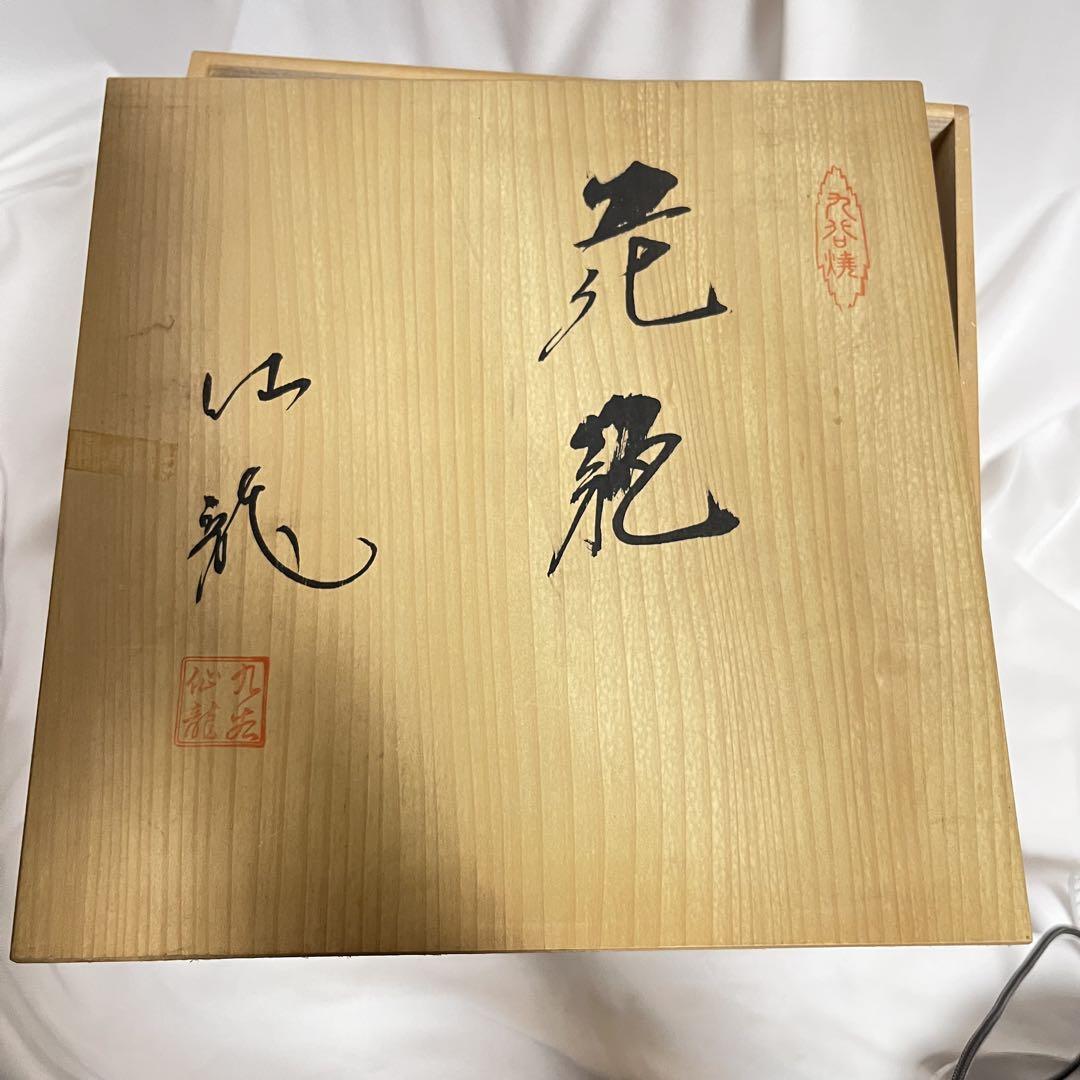 九谷燒
花瓶
仙龍
九谷
仙龍